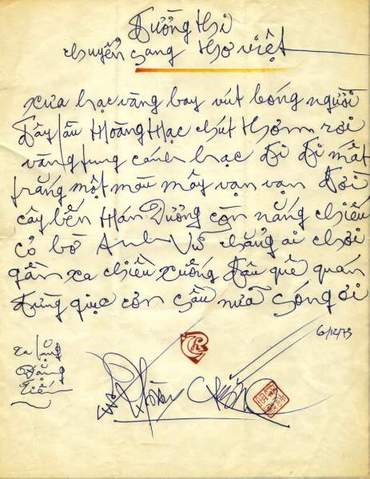 Đường thi
chuyển sang thơ việt
xưa hạc vàng bay vút bóng người
Đây lầu Hoàng Hạc chút thơm rơi
vàng tung cánh hạc đi đi mất
trắng một màu mây vạn vạn đời
cây bến Hán Dương còn nắng chiều
cỏ bờ Anh Vũ chẳng ai chơi
gần xa chiều xuống đâu quê quán
đừng giục cơn sầu nữa sóng ơi
6/12/73
ra tặng
Đặng
Tiến
Vũ Hoàng Chương